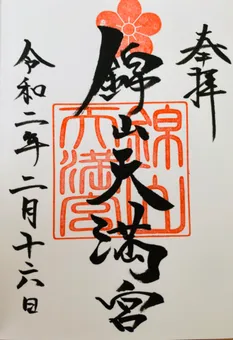 奉拝
錦山天満宮
錦山天満宮
令和二年二月十六日